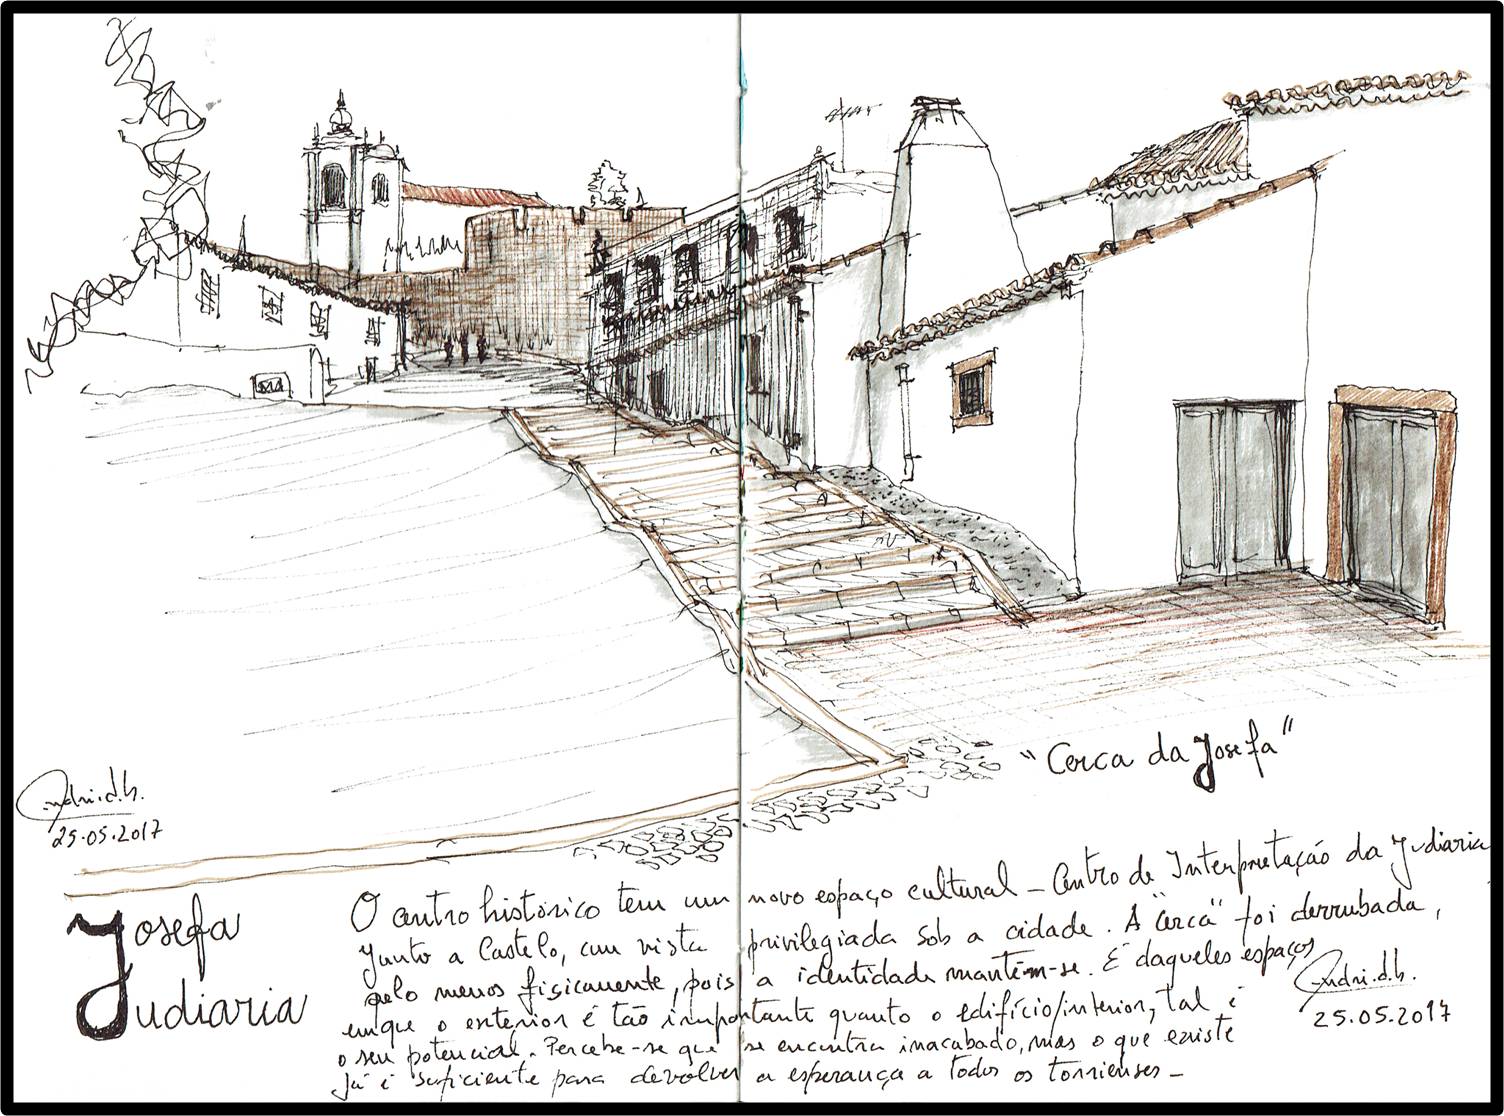 "Cerca da Josefa"
Andri.d.b.
25.05.2017
Josefa
Judiaria
O centro histórico tem um novo espaço cultural – Centro de Interpretação da Judiaria
junto a Castelo, com vista privilegiada sob a cidade. A "cerca" foi derrubada,
pelo menos fisicamente, pois a identidade mantém-se. É daqueles espaços
em que o exterior é tão importante quanto o edifício/interior, tal é
o seu potencial. Percebe-se que se encontra inacabado, mas o que existe
já é suficiente para devolver a esperança a todos os torrienses –
Andri.d.b.
25.05.2017